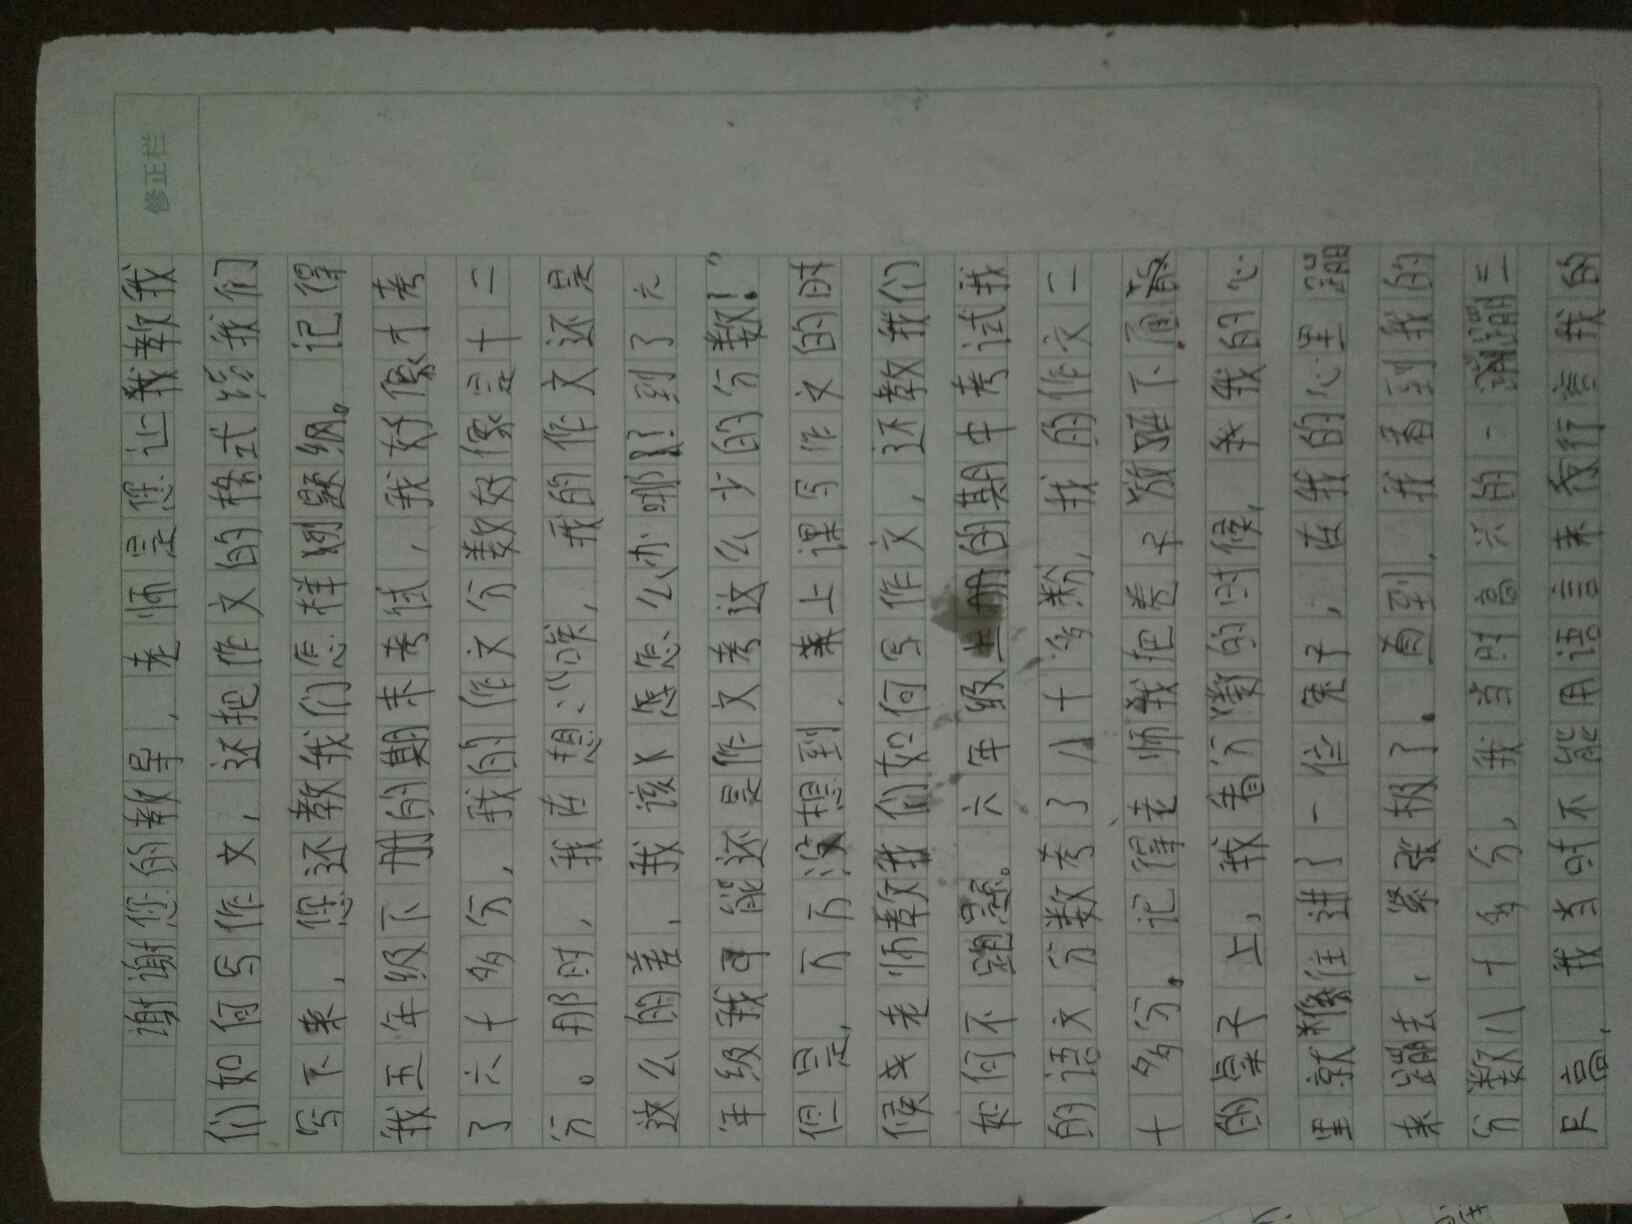 修正栏
谢谢您的教导，老师是您让我教我
们如何写作文，还把作文的格式给我们
写下来，您还教我们怎样列题纲。记得
我五年级下册的期末考试，我好像才考
了六十多分，我的作文分数好像是十二
分。那时，我在想：“唉，我的作文还是
这么的差，我该怎么办哪！到了六
年级我可能还是作文考这么少的分数！”
但是，万万没想到，来上课写作文的时
候老师教我们如何写作文，还教我们
如何不跑题。六年级上册的期中考试我
的语文分数考了八十多分，我的作文二
十多分。记得老师把卷子放在下面
的桌子上，我看分数的时候，我的心
里就像住进了一位兔子，在我的心里蹦
来蹦去，紧张极了。看到，我看到我的
分数八十多分，我当时高兴的一蹦三
尺高，我当时不能用语言来形容我的